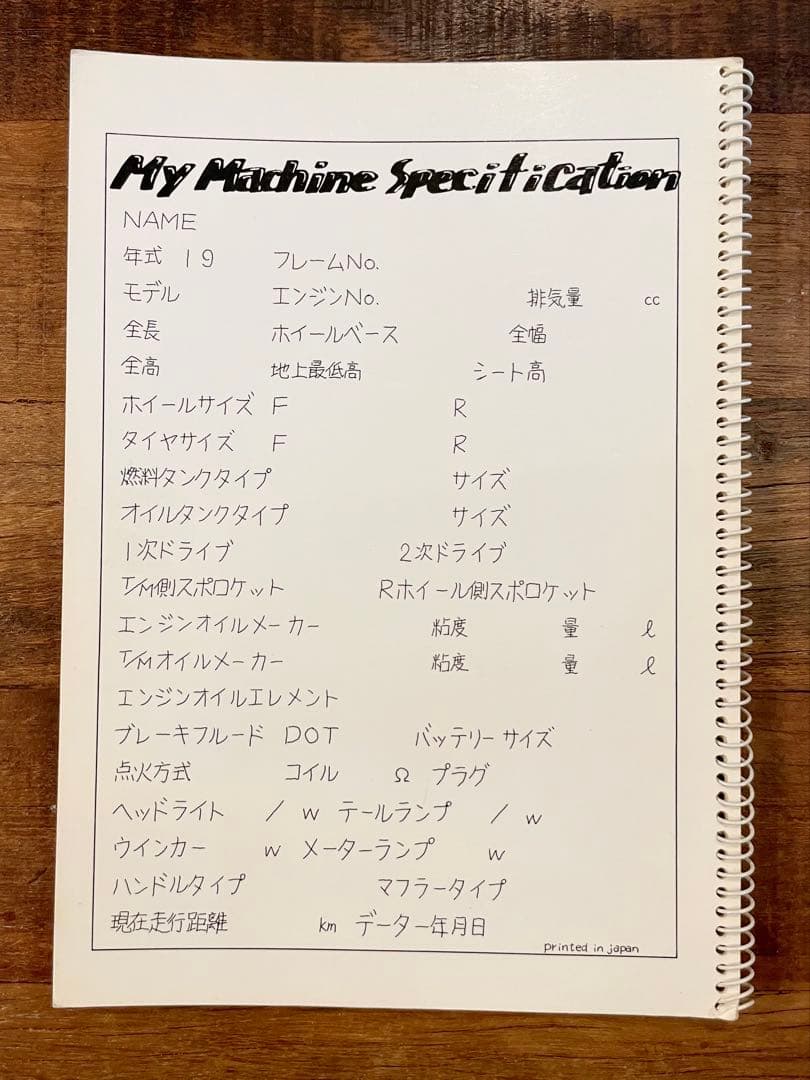 My Machine Specification
NAME
年式 19 フレームNo.
モデル エンジンNo. 排気量 cc
全長 ホイールベース 全幅
全高 地上最低高 シート高
ホイールサイズ F R
タイヤサイズ F R
燃料タンクタイプ サイズ
オイルタンクタイプ サイズ
1次ドライブ 2次ドライブ
T/M側スポロケット Rホイール側スポロケット
エンジンオイルメーカー 粘度 量 ℓ
T/Mオイルメーカー 粘度 量 ℓ
エンジンオイルエレメント
ブレーキフルード DOT バッテリーサイズ
点火方式 コイル Ω プラグ
ヘッドライト / w テールランプ / w
ウインカー w メーターランプ w
ハンドルタイプ マフラータイプ
現在走行距離 km データー年月日
printed in japan